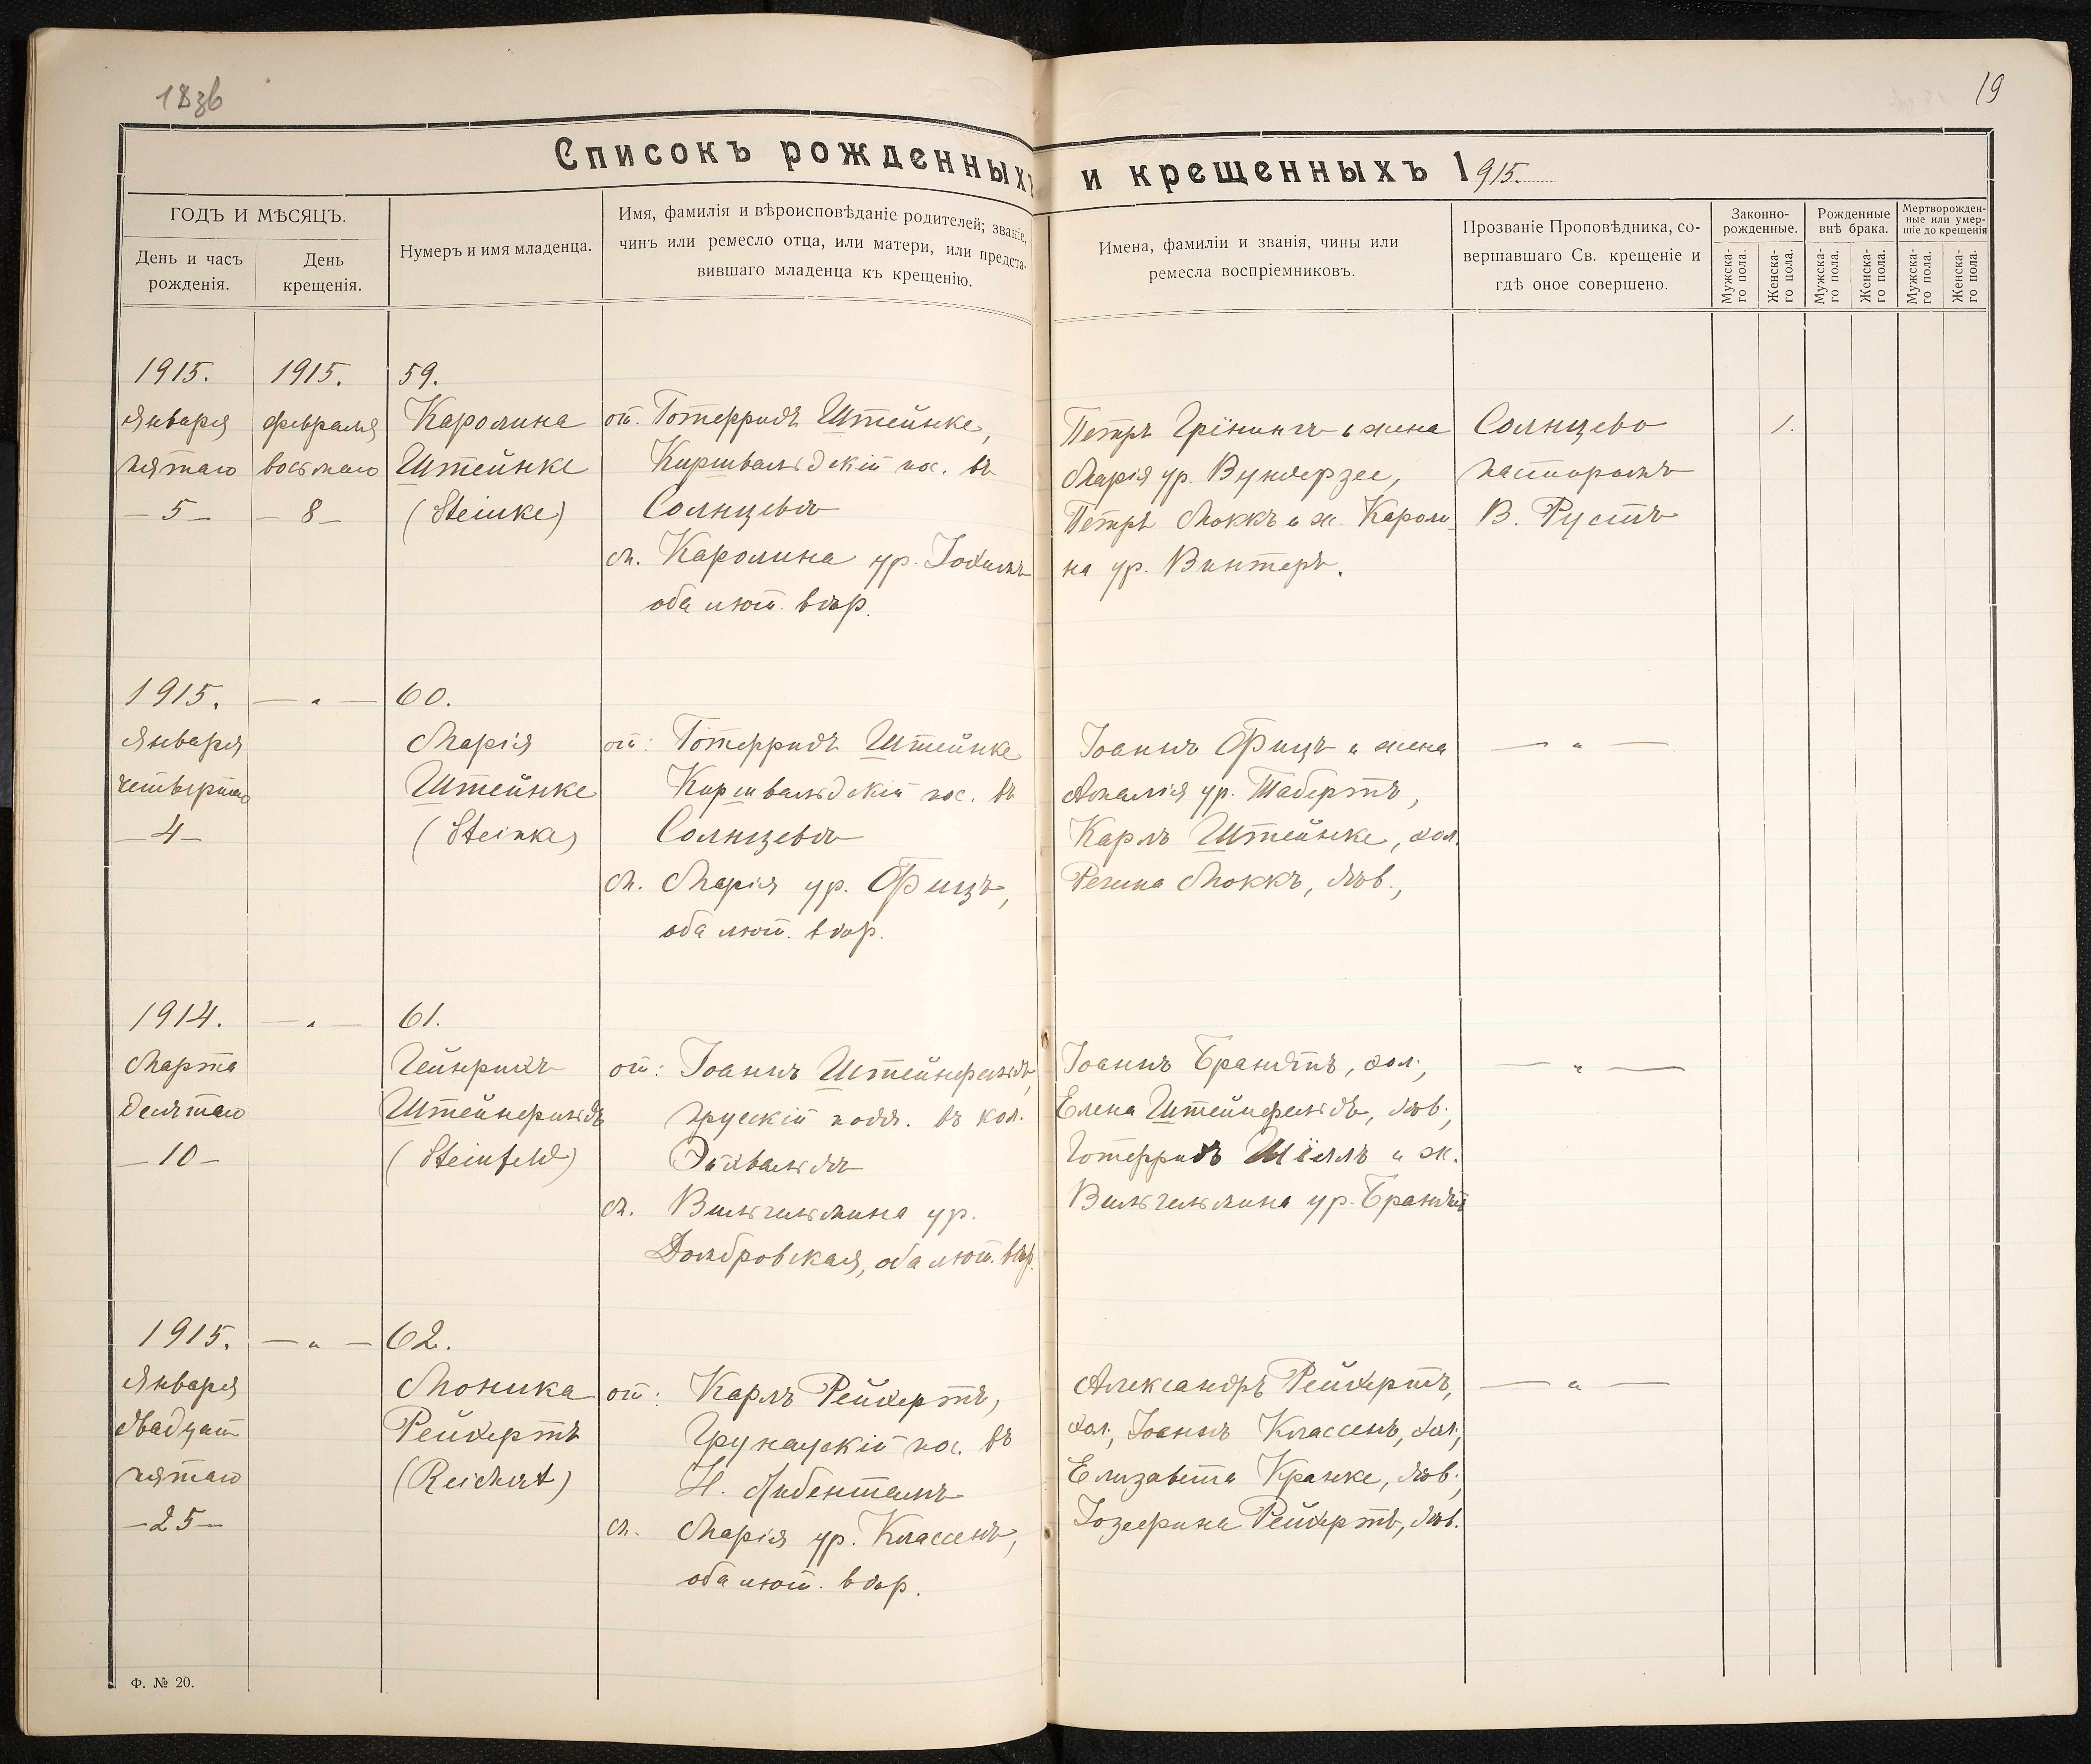 18зв
19
Списокъ рожденныхъ и крещенныхъ 1915.
ГОДЪ И МѢСЯЦЪ.
День и часъ рожденія.
День крещенія.
Нумеръ и имя младенца.
Имя, фамилія и вѣроисповѣданіе родителей; званіе,
чинъ или ремесло отца, или матери, или предста-
вившаго младенца къ крещенію.
Имена, фамиліи и званія, чины или
ремесла воспріемниковъ.
Прозваніе Проповѣдника, со-
вершавшаго Св. крещеніе и
гдѣ оное совершено.
Законно-
рожденные.
Рожденные
внѣ брака.
Мертворожден-
ные или умер-
шіе до крещенія
Мужска-
го пола.
Женска-
го пола.
Мужска-
го пола.
Женска-
го пола.
Мужска-
го пола.
Женска-
го пола.
1915.
Января
пятаго
– 5 –
1915.
февраля
восьмаго
– 8 –
59.
Каролина
Штейнке
(Steinke)
от. Готфридъ Штейнке,
Киршвальдскій пос. въ
Солнцевѣ
м. Каролина ур.
оба лют. вѣр.
Петръ Грінингъ и жена
Марія ур. Вундерзее,
Петръ Моккъ и ж. Кароли-
на ур. Винтеръ.
Солнцево
пасторомъ
В. Рустъ
1.
1915.
Января
четвертаго
– 4 –
— " —
60.
Марія
Штейнке
(Steinke)
от: Готфридъ Штейнке
Киршвальдскій пос. въ
Солнцевѣ
м. Марія ур. Фицъ,
оба лют. вѣр.
Іоаннъ Фицъ и жена
Амалія ур. Табертъ,
Карлъ Штейнке, хол.
Регина Моккъ, дѣв.,
— " —
1914.
Марта
десятаго
– 10 –
— " —
61.
Гейнрихъ
Штейнфельдъ
(Steinfeld)
от: Іоаннъ Штейнфельдъ,
прусскій подд. въ кол.
Эйхвальдѣ
м. Вильгельмина ур.
Домбровская, оба лют. вѣр.
Іоаннъ Брандтъ, хол.,
Елена Штейнфельдъ, дѣв.,
Готфридъ Шіллъ и ж.
Вильгельмина ур. Брандтъ
— " —
1915.
Января
двадцат
пятаго
– 25 –
— " —
62.
Моника
Рейхертъ
(Reichert)
от: Карлъ Рейхертъ,
Грунаускій пос. въ
Н. Либенталь
м. Марія ур. Классенъ,
оба лют. вѣр.
Александръ Рейхертъ,
хол., Іоаннъ Классенъ, хол.,
Елизавета Кранке, дѣв.,
Іозефина Рейхертъ, дѣв.
— " —
Ф. № 20.